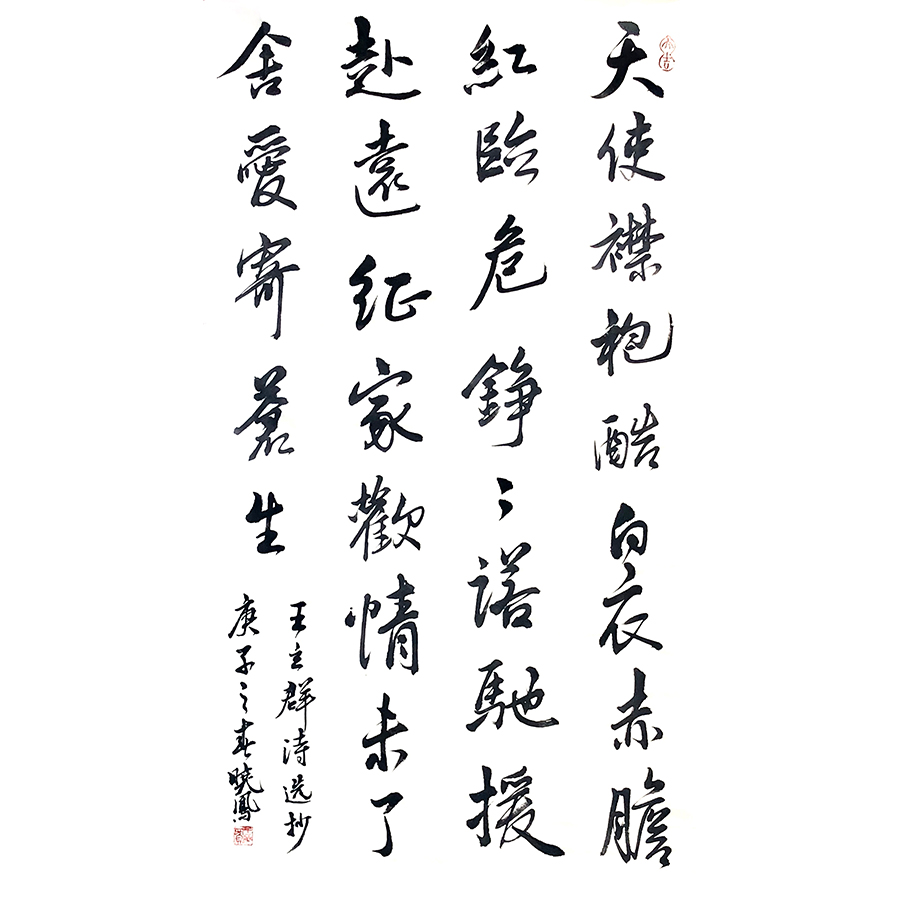 天使襟袍酷白衣赤膽
紅臨危錚〻諾馳援
赴遠征家歡情未了
舍愛寄蒼生
王主群诗选抄
庚子之春曉鳳